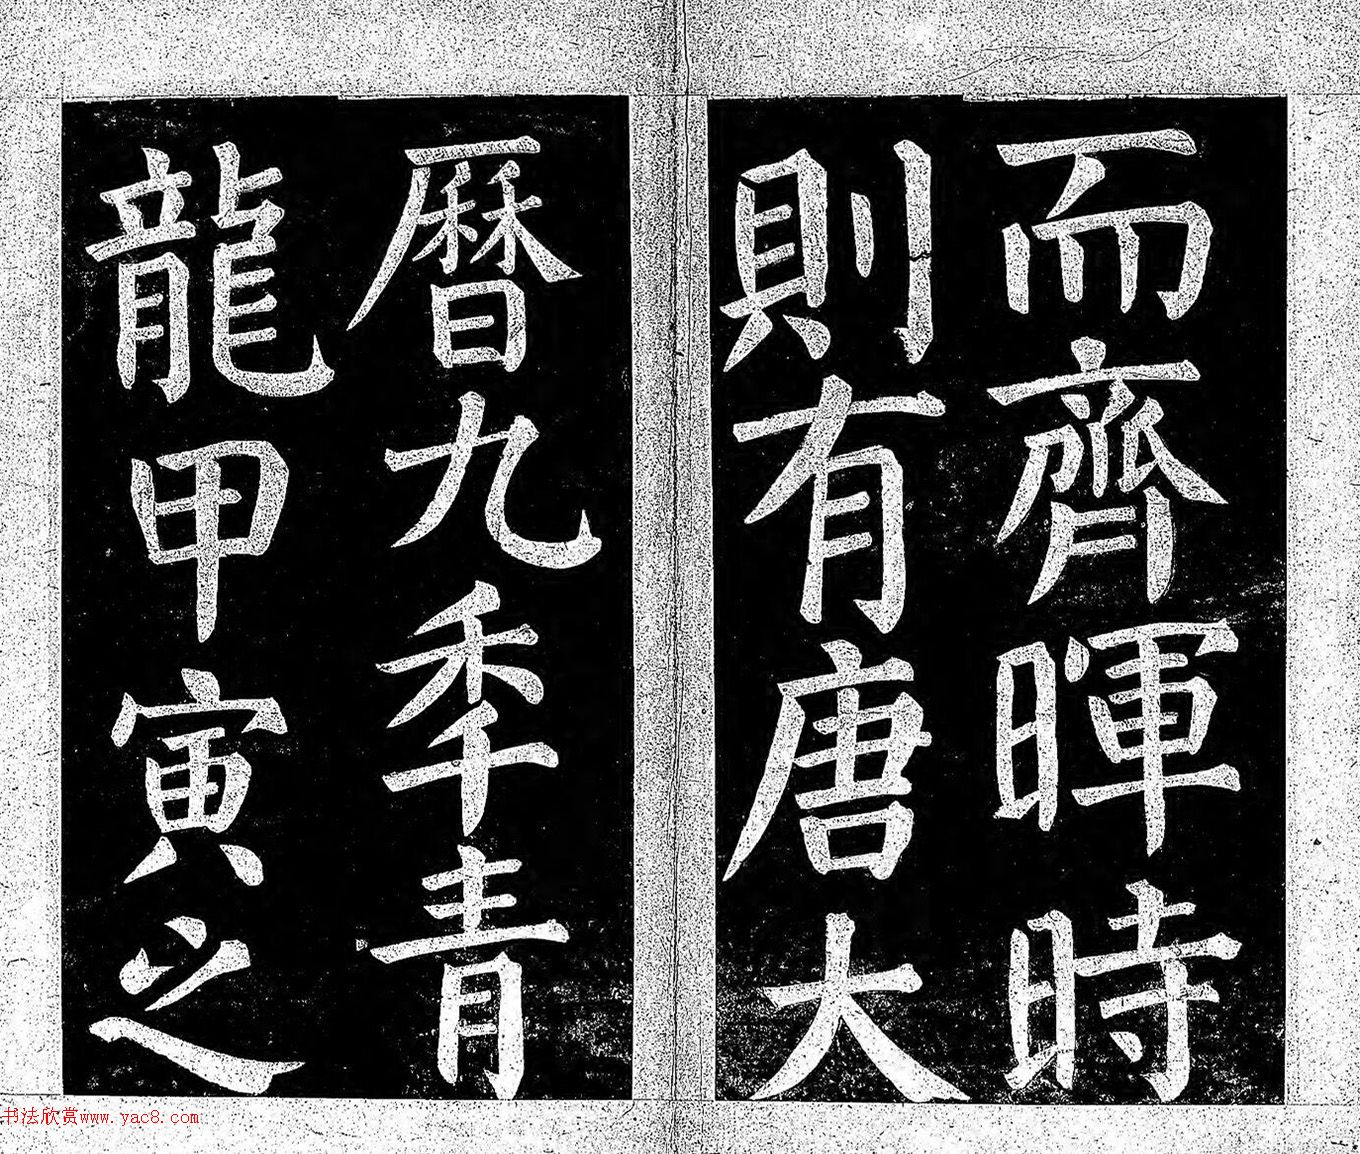 而齊暉時
則有唐大
曆九秊青
龍甲寅之
书法欣赏www.yac8.com